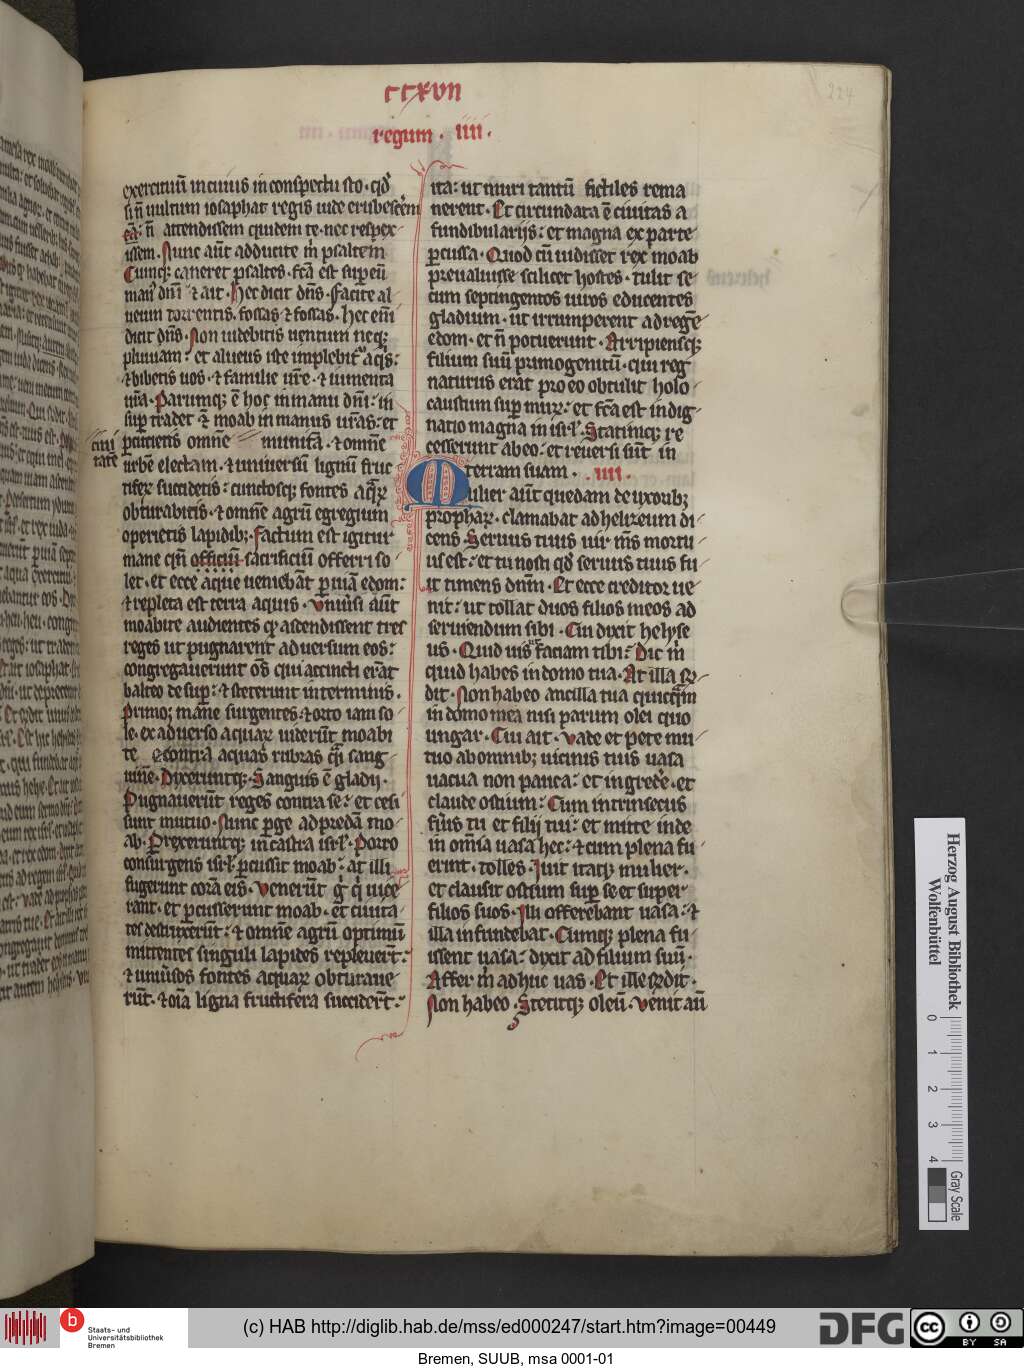 ccxvii
regum . iiii .
224
exercituū in cuius in conspectu sto · qđ
si n̄ uultum iosaphat regis iude erubescerem
eā : n̄ attendissem quidem te · nec respex
issem . Nunc aūt adducite m̄ psaltem
Cumq; caneret psaltes · fc̄a est sup eū
man' dn̄i ⁊ ait . Hec dicit dn̄s . Facite al
ueum torrentis . fossas ⁊ fossas . Hec eni
dicit dn̄s . Non uidebitis uentum neq;
pluuiam : et alueus iste implebit' aq̄s :
⁊ bibetis uos . ⁊ familie ur̄e . ⁊ iumenta
ur̄a . Parumq; ē hoc in manu dn̄i : in
sup tradet ⁊ moab in manus ur̄as : et
percutietis omnē munitā . ⁊ omnē
ciui
tatē
urbē electam . ⁊ uniuersū lignū fruc
tifeꝝ succidetis : cunctosq; fontes aq̄ꝝ
obturabitis . ⁊ omnē agrū egregium
operietis lapidib; . Factum est igitur
mane qn̄ officiū sacrificiū offerri so
let . et ecce aque ueniebāt p uiā edom :
⁊ repleta est terra aquis . Vniūsi aūt
moabite audientes qꝫ ascendissent tres
reges ut pugnarent aduersum eos :
congregauerunt os̄ qui accincti erāt
balteo desup : ⁊ steterunt in terminis .
Primoq; mane surgentes . ⁊ orto iam so
le . ex aduerso aquaꝝ uiderūt moabi
te econtra aquas rubras q̄si sang
uinē . Dixeruntq; . Sanguis ē gladii .
Pugnauerūt reges contra se : et cesi
sunt mutuo . Nunc pge ad predā mo
ab . Prexeruntq; in castra isrl . Porro
consurgens isrl percussit moab : at illi
fugerunt corā eis . Venerūt g̊ q̇ uice
rant . et percusserunt moab . et ciuita
tes destruxerūt : ⁊ omnē agrū optimū
mittentes singuli lapides repleuerūt :
⁊ uniūsos fontes aquaꝝ obturaue
rūt . ⁊ oīa ligna fructifera succiderūt :
ita : ut muri tantū fictiles rema
nerent . Et circumdata ē ciuitas a
fundibulariis : et magna ex parte
percussa . Quod cū uidisset rex moab
preualuisse scilicet hostes . tulit se
cum septingentos uiros educentes
gladium . ut irrumperent ad regē
edom . et n̄ potuerunt . Arripiensq;
filium suū primogenitū . qui reg
naturus erat pro eo obtulit holo
caustum sup muꝝ : et fc̄a est indig
natio magna in isrl . Statimq; re
cesserunt ab eo : et reuersi sūt in
terram suam . iiii .
Mulier aūt quedam de uxorib;
prophaꝝ . clamabat ad helizeum di
cens . Seruus tuus uir m̄s mortu
us est : et tu nosti qđ seruus tuus fu
it timens dnm̄ . Et ecce creditor ue
nit : ut tollat duos filios meos ad
seruiendum sibi . Cui dixit helyse
us . Quid uis ut faciam tibi : Dic m̄
quid habes in domo tua . At illa rn̄
dit . Non habeo ancilla tua quicq̄m
in domo mea nisi parum olei quo
ungar . Cui ait . Vade et pete mu
tuo ab omnib; uicinis tuis uasa
uacua non pauca : et ingredere . et
claude ostium : Cum intrinsecus
fūis tu et filii tui : et mitte inde
in om̄ia uasa hec : ⁊ cum plena fu
erint . tolles . Iuit itaq; mulier .
et clausit ostium sup se et super
filios suos . Illi offerebant uasa : ⁊
illa infundebat . Cumq; plena fu
issent uasa : dixit ad filium suū .
Affer m̄ adhuc uas . Et ille rn̄dit .
Non habeo . Stetitq; oleū . Venit aū
Herzog August Bibliothek
Wolfenbüttel
0 1 2 3 4
Gray Scale
b
Staats- und
Universitätsbibliothek
Bremen
(c) HAB http://diglib.hab.de/mss/ed000247/start.htm?image=00449
DFG
cc BY SA
Bremen, SUUB, msa 0001-01